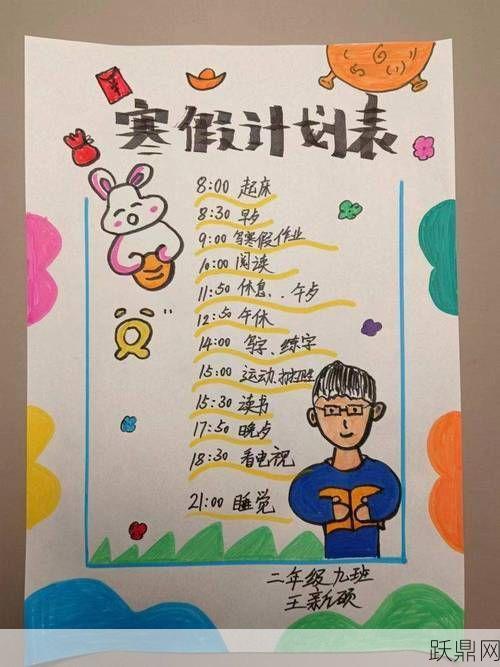 寒假计划表
8:00 起床
8:30 早歺
9:00 写寒假作业
10:00 阅读
11:50 休息、午歺
12:50 午休
14:00 写字、练字
15:00 运动、
15:30 读书
17:50 晚歺
18:30 看电视
21:00 睡觉
二年级九班
王新硕
跃鼎网